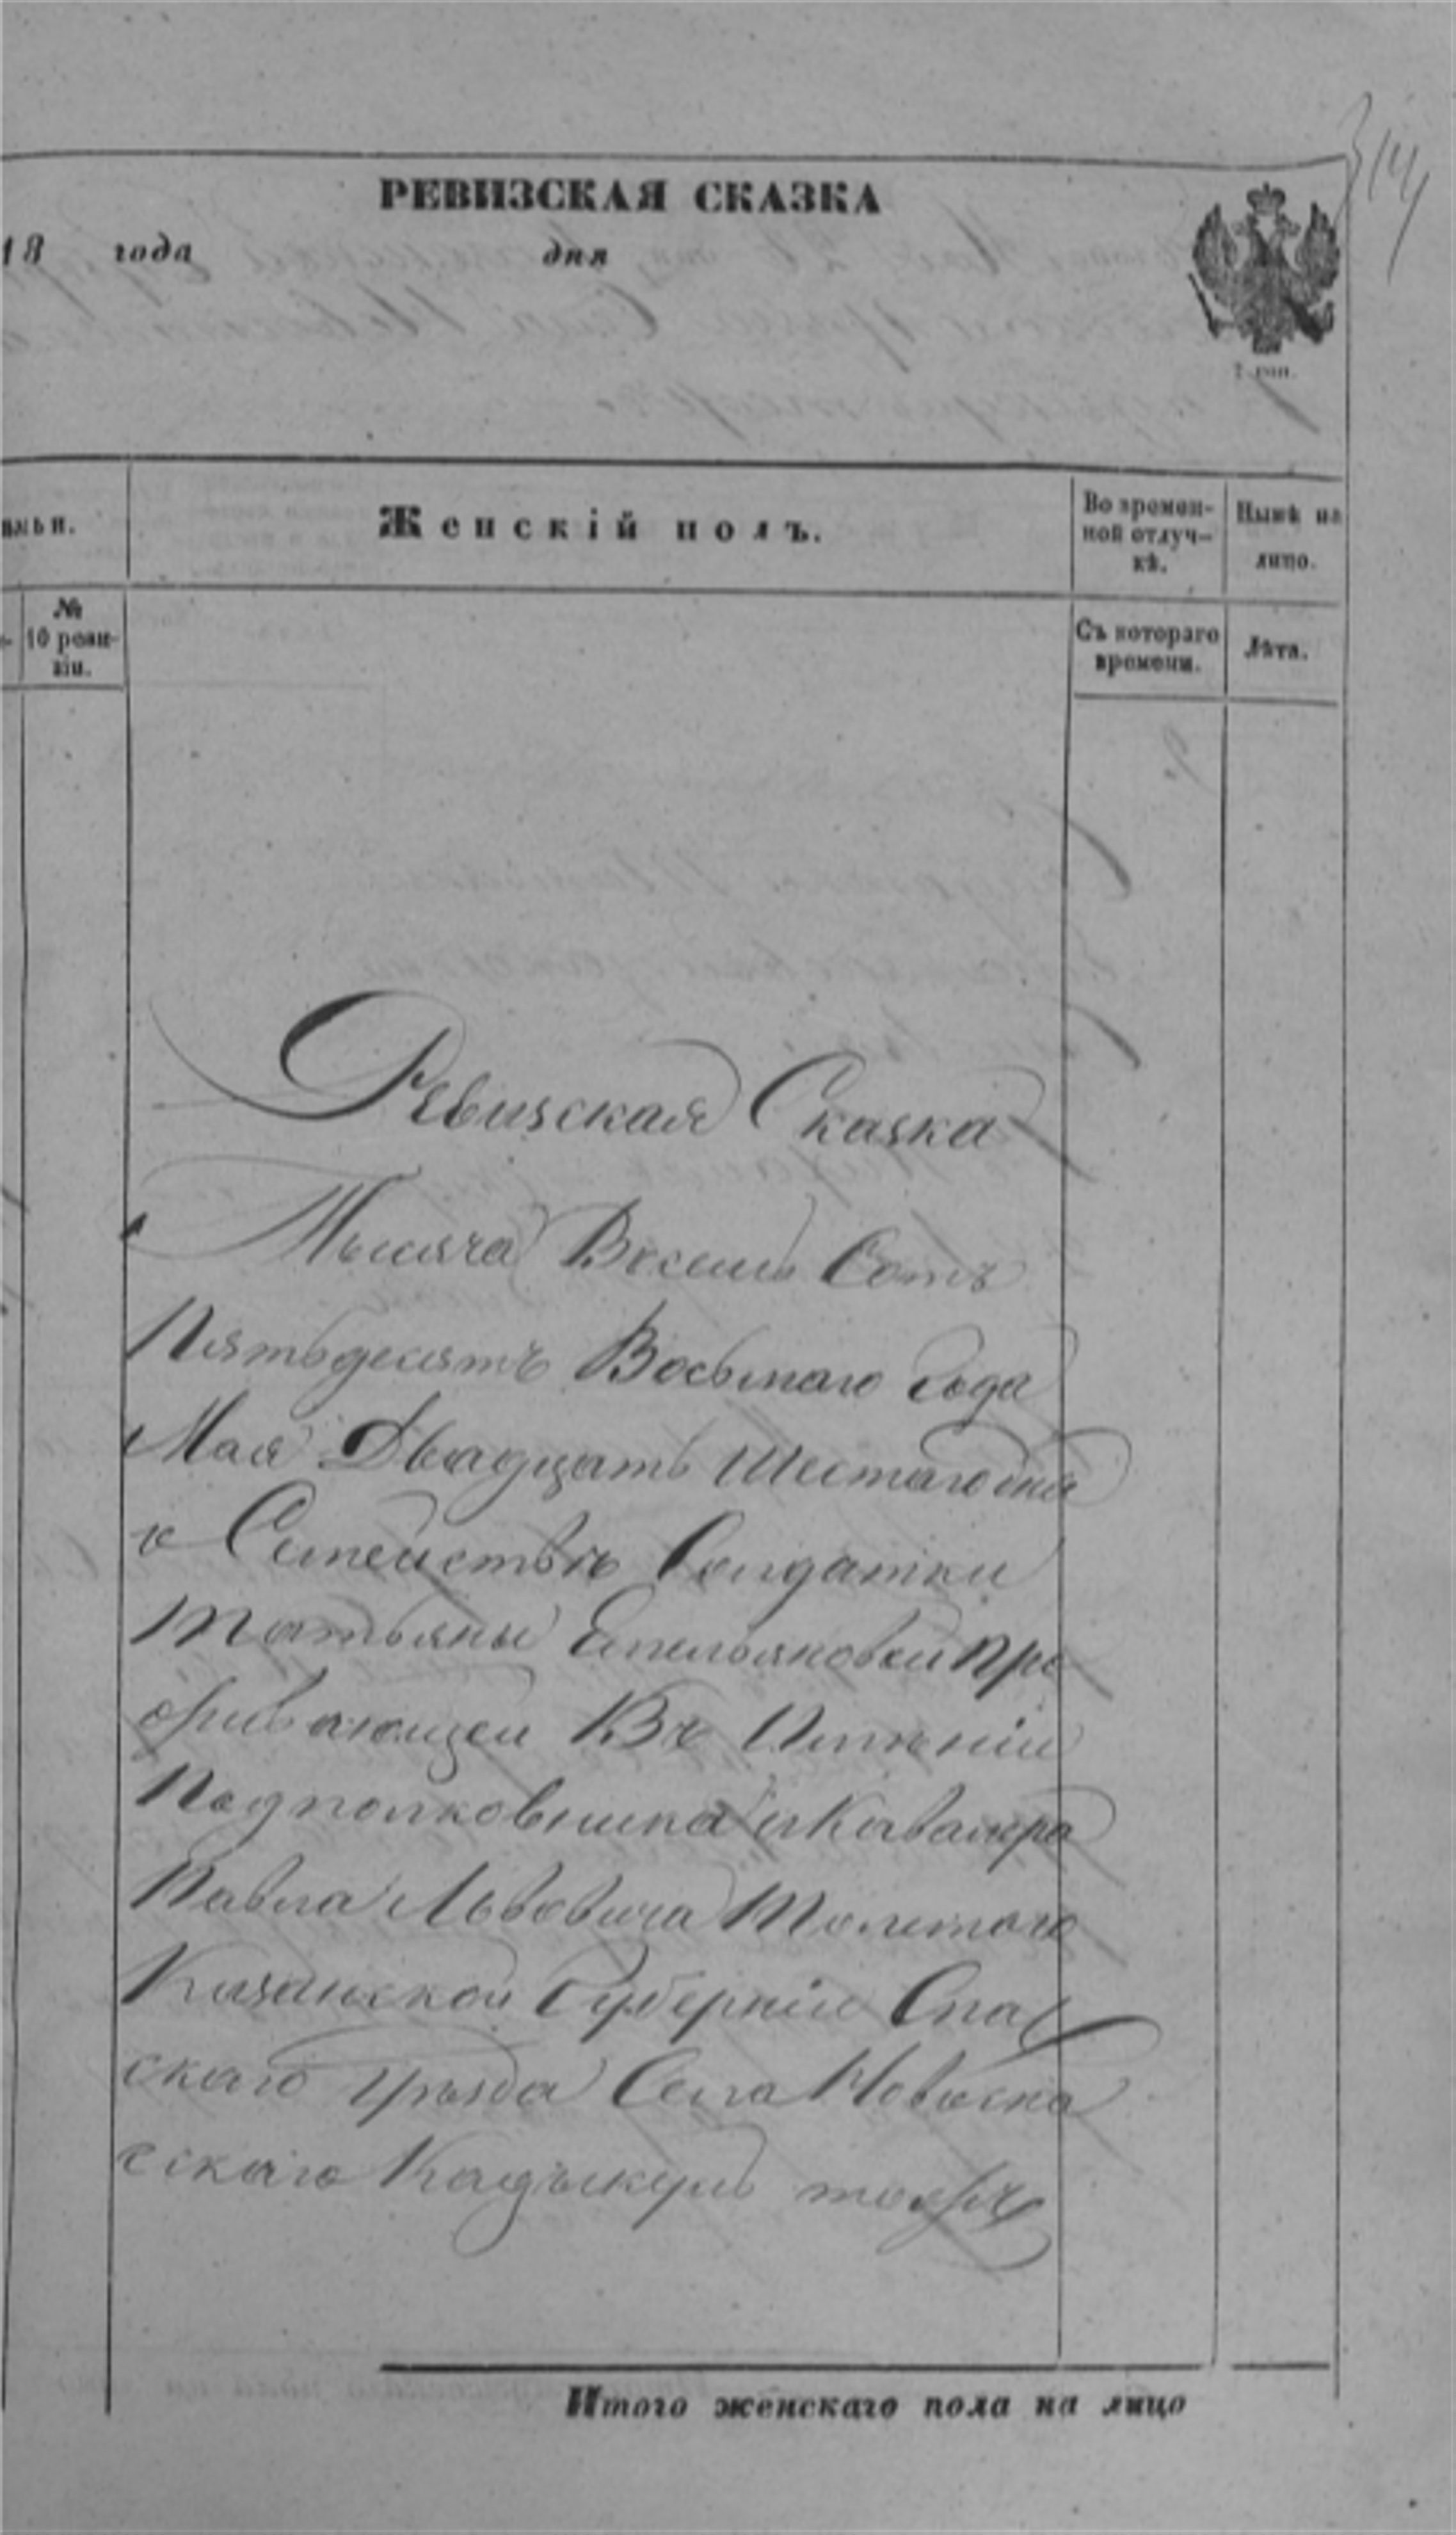 314
РЕВИЗСКАЯ СКАЗКА
18 года дня
2 коп.
мьи.
Женскій полъ.
Во времен-
ной отлуч-
кѣ.
Нынѣ на
лицо.
№
10 реви-
зіи.
Съ котораго
времени.
Лѣта.
Ревизская Сказка
Тысяча Восемь Сотъ
Пятьдесятъ Восьмаго Года
Мая Двадцать Шестаго дня
о Семействѣ Солдатки
Татьяны Емельяновой про
живающей Въ Имѣніи
Подполковника и Кавалера
Павла Львовича Толстого
Казанской Губерніи Спа
скаго уѣзда Села Новоспа
сскаго тожъ
Итого женскаго пола на лицо